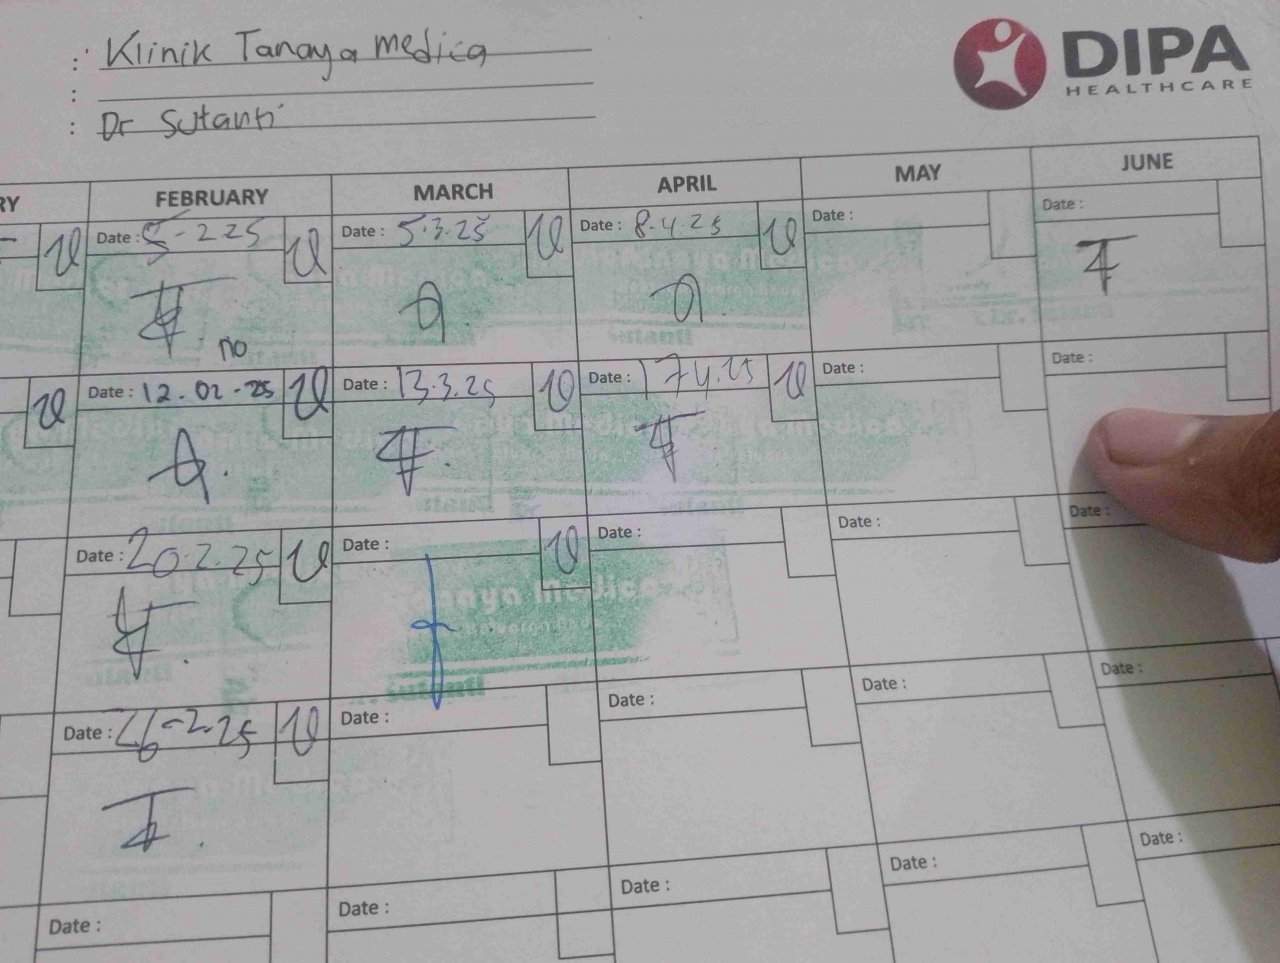 : Klinik Tanaya Medica
:
: Dr Sutanti
DIPA
HEALTHCARE
RY FEBRUARY MARCH APRIL MAY JUNE
Date : 5-2 25 Date : 5.3.25 Date : 8.4.25 Date : Date :
no
Date : 12.02-25 Date : 13.3.25 Date : 17.4.25 Date : Date :
Date : 20.2.25 Date : Date : Date : Date :
Tanaya Medica
Sutanti
Date : 26-2.25 Date : Date : Date : Date :
Date : Date : Date : Date : Date :